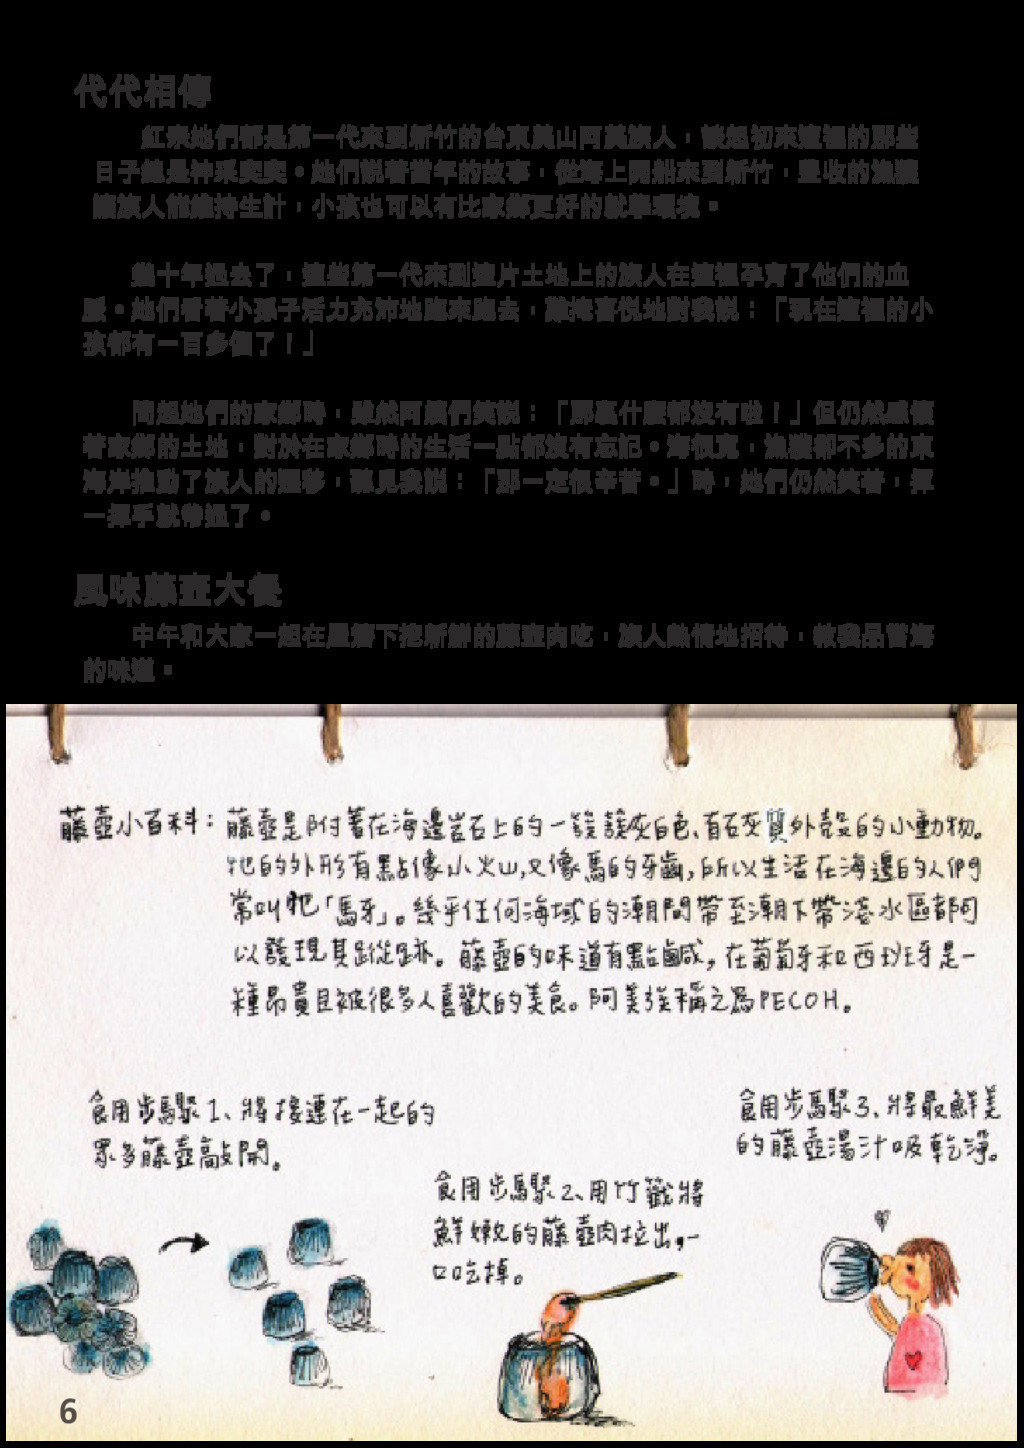 代代相傳
紅泶她們都是第一代來到新竹的台東美山阿美族人，談起初來這裡的那些
日子總是神采奕奕。她們說著當年的故事，從海上開船來到新竹，豐收的漁獲
讓族人能維持生計，小孩也可以有比家鄉更好的就學環境。
幾十年過去了，這些第一代來到這片土地上的族人在這裡孕育了他們的血
脈。她們看著小孫子活力充沛地跑來跑去，難掩喜悅地對我說：「現在這裡的小
孩都有一百多個了！」
問起她們的家鄉時，雖然阿姨們笑說：「那裏什麼都沒有啦！」但仍然感懷
著家鄉的土地，對於在家鄉時的生活一點都沒有忘記。海很寬，漁獲卻不多的東
海岸推動了族人的遷移，聽見我說：「那一定很辛苦。」時，她們仍然笑著，揮
一揮手就帶過了。
風味藤壺大餐
中午和大家一起在屋簷下挖新鮮的藤壺肉吃，族人熱情地招待，教我品嘗海
的味道。
藤壺小百科：藤壺是附著在海邊岩石上的一簇簇灰白色、有石灰質外殼的小動物。
牠的外形有點像小火山，又像馬的牙齒，所以生活在海邊的人們
常叫牠「馬牙」。幾乎任何海域的潮間帶至潮下帶淺水區都可
以發現其蹤跡。藤壺的味道有點鹹，在葡萄牙和西班牙是一
種昂貴且被很多人喜歡的美食。阿美族稱之為PECOH。
食用步驟1、將接連在一起的
眾多藤壺敲開。
食用步驟2、用竹籤將
鮮嫩的藤壺肉拉出，一
口吃掉。
食用步驟3、將最鮮美
的藤壺湯汁吸乾淨。
6